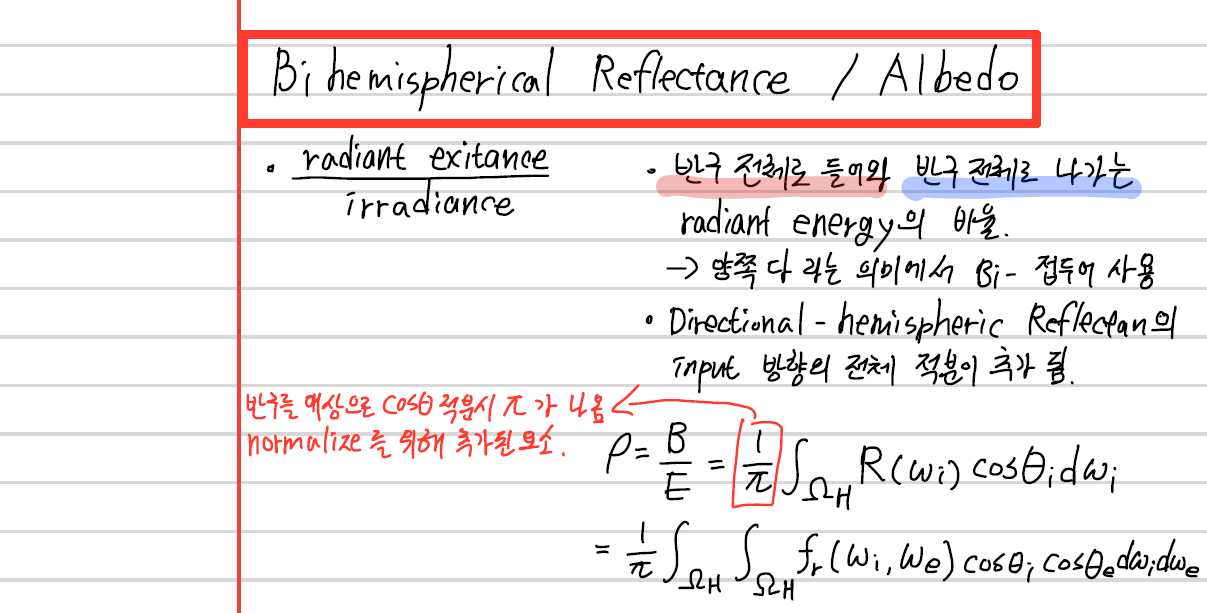 Bi hemispherical Reflectance / Albedo
• radiant exitance / irradiance
• 반구 전체로 들어와 반구 전체로 나가는
radiant energy의 비율.
→ 양쪽 다 라는 의미에서 Bi- 접두어 사용
• Directional - hemispheric Reflectan의
input 방향의 전체 적분이 추가 됨.
반구를 대상으로 cosθ 적분시 π가 나옴
normalize를 위해 추가된 요소.
ρ = B/E = 1/π ∫_{Ω_H} R(ω_i) cosθ_i dω_i
= 1/π ∫_{Ω_H} ∫_{Ω_H} f_r(ω_i, ω_e) cosθ_i cosθ_e dω_i dω_e